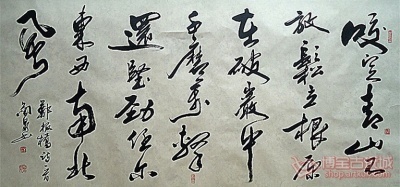 咬定青山不
放鬆立根原
在破巖中
千磨萬擊
還堅勁任尔
東西南北
風
鄭板橋詩一首